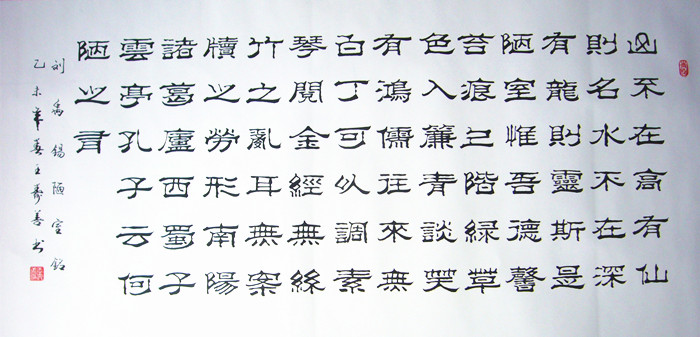 山不在高有仙
則名水不在深
有龍則靈斯是
陋室惟吾德馨
苔痕上階綠草
色入簾青談笑
有鴻儒往來無
白丁可以調素
琴閱金經無絲
竹之亂耳無案
牘之勞形南陽
諸葛廬西蜀子
雲亭孔子云何
陋之有
刘禹锡陋室铭
乙未年春王善书